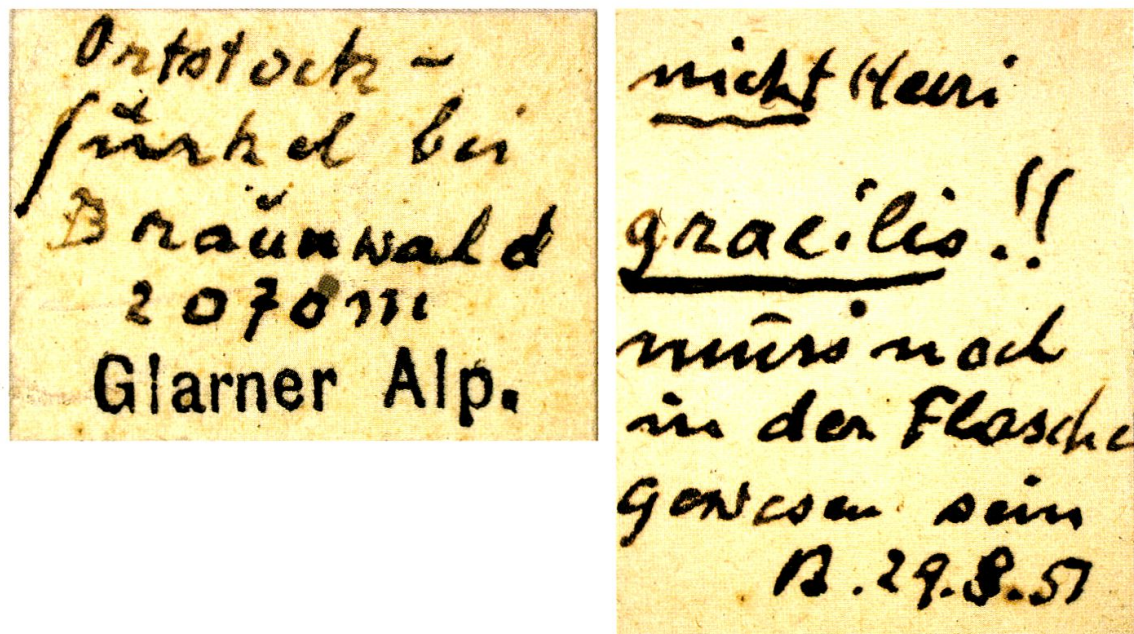 Ortstock-
fürkel bei
Braunwald
2070m
Glarner Alp.
nicht Heeri
gracilis.!!
muss noch
in der Flasche
gewesen sein
B. 29.8.51